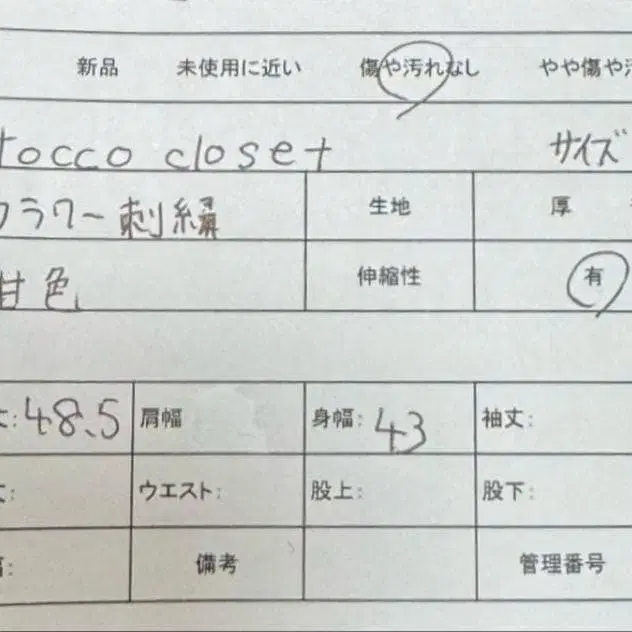 新品 未使用に近い 傷や汚れなし やや傷や汚
tocco closet サイズ
フラワー刺繍 生地 厚
甘色 伸縮性 有
丈: 48.5 肩幅 身幅: 43 袖丈:
丈: ウエスト: 股上: 股下:
幅: 備考 管理番号